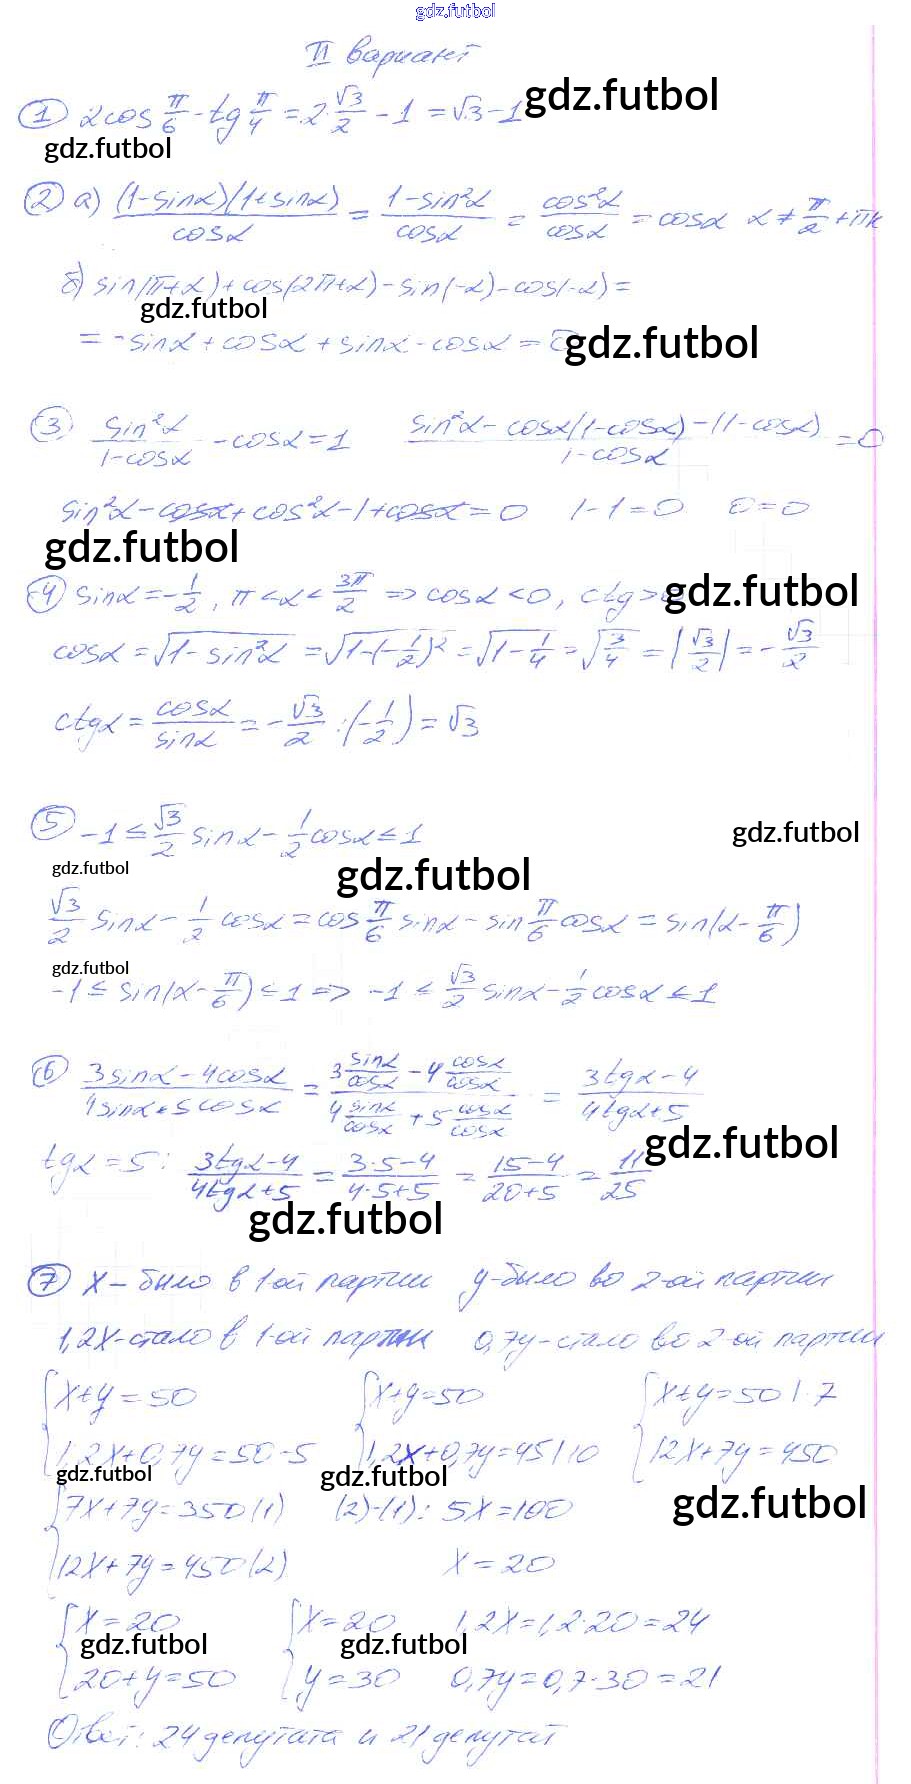 gdz.futbol
II вариант
① 2cos π/6 - tg π/4 = 2·√3/2 - 1 = √3 - 1 gdz.futbol
gdz.futbol
② а) (1-sinα)(1+sinα)/cosα = 1-sin²α/cosα = cos²α/cosα = cosα α ≠ π/2 + πk
б) sin(π+α)+cos(2π+α)-sin(-α)-cos(-α)=
gdz.futbol
= -sinα+cosα+sinα-cosα=0 gdz.futbol
③ sin²α/1-cosα - cosα=1 sin²α-cosα(1-cosα)-(1-cosα)/1-cosα =0
sin²α-cosα+cos²α-1+cosα=0 1-1=0 0=0
gdz.futbol
④ sinα=-1/2, π<α<3π/2 => cosα<0, ctg>0 gdz.futbol
cosα=√1-sin²α=√1-(-1/2)²=√1-1/4=√3/4=|√3/2|=-√3/2
ctgα=cosα/sinα=-√3/2:(-1/2)=√3
⑤ -1≤√3/2 sinα-1/2 cosα≤1 gdz.futbol
gdz.futbol gdz.futbol
√3/2 sinα-1/2 cosα=cos π/6 sinα-sin π/6 cosα=sin(α-π/6)
gdz.futbol
-1≤sin(α-π/6)≤1=> -1≤√3/2 sinα-1/2 cosα≤1
⑥ 3sinα-4cosα/4sinα+5cosα = 3 sinα/cosα - 4 cosα/cosα / 4 sinα/cosα + 5 cosα/cosα = 3tgα-4/4tgα+5
tgα=5: 3tgα-4/4tgα+5 = 3·5-4/4·5+5 = 15-4/20+5 = 11/25 gdz.futbol
gdz.futbol
⑦ x-было в 1-ой партии y-было во 2-ой партии
1,2x-стало в 1-ой партии 0,7y-стало во 2-ой партии
{x+y=50 {x+y=50 {x+y=50 |·7
1,2x+0,7y=50-5 1,2x+0,7y=45|·10 12x+7y=450
gdz.futbol gdz.futbol gdz.futbol
{7x+7y=350(1) (2)-(1): 5x=100
12x+7y=450(2) x=20
{x=20 {x=20 1,2x=1,2·20=24
gdz.futbol gdz.futbol
20+y=50 y=30 0,7y=0,7·30=21
Ответ: 24 депутата и 21 депутат